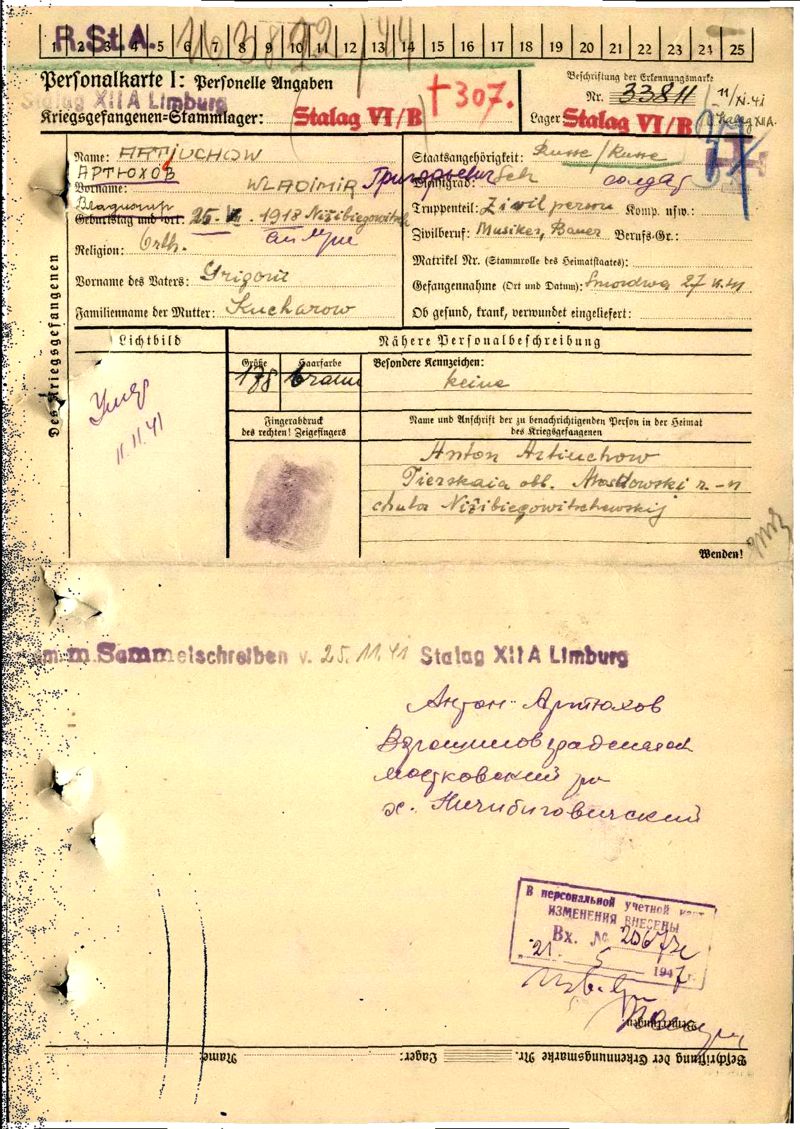 R.St.A. 163892/44
1 2 3 4 5 6 7 8 9 10 11 12 13 14 15 16 17 18 19 20 21 22 23 24 25
Personalkarte I: Personelle Angaben
Stalag XII A Limburg
Kriegsgefangenen=Stammlager: Stalag VI/B
† 307.
Beschriftung der Erkennungsmarke
Nr. 33811
11/XI.41
Lager: Stalag VI/B
Stalag XII A.
Des Kriegsgefangenen
Name: ARTIUCHOW
АРТЮХОВ
Vorname: WLADIMIR Григорьевич
Владимир
Geburtstag und =ort: 1918 Nižibiegowitsch
Religion: Orth.
Vorname des Vaters: Grigori
Familienname der Mutter: Kucharow
Staatsangehörigkeit: Russe/Russe
Dienstgrad: Солдат
Truppenteil: Zivilperson Komp. usw.:
Zivilberuf: Musiker, Bauer Berufs=Gr.:
Matrikel Nr. (Stammrolle des Heimatstaates):
Gefangennahme (Ort und Datum):
Ob gesund, krank, verwundet eingeliefert:
Lichtbild
11.11.41
Nähere Personalbeschreibung
Größe Haarfarbe Besondere Kennzeichen:
178 braun keine
Fingerabdruck
des rechten! Zeigefingers
Name und Anschrift der zu benachrichtigenden Person in der Heimat
des Kriegsgefangenen
Anton Artiuchow
obl. r.-n
Wenden!
m.Sammelschreiben v. 25.11.41 Stalag XII A Limburg
Антон Артюхов
московский
х. Ничибиговический
В персональной учетной карт
ИЗМЕНЕНИЯ ВНЕСЕНЫ
Вх. №
"21" 5 1947г.
Bemerkungen:
Beschriftung der Erkennungsmarke Nr. Lager: Name: